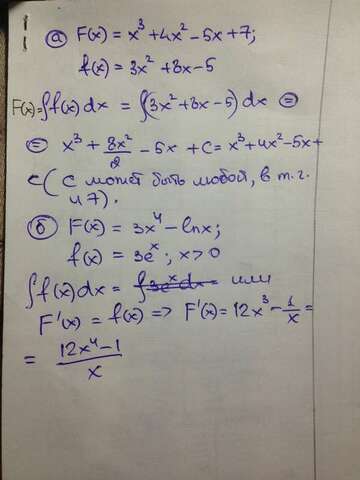 а) F(x) = x³ + 4x² - 5x + 7;
f(x) = 3x² + 8x - 5
F(x)=∫f(x)dx = ∫(3x² + 8x - 5)dx =
= x³ + 8x²/2 - 5x + C = x³ + 4x² - 5x +
C (C может быть любой, в т.г.
и 7).
б) F(x) = 3x⁴ - lnx;
f(x) = 3eˣ; x > 0
∫f(x)dx = ∫3eˣdx = или
F'(x) = f(x) => F'(x) = 12x³ - 1/x =
= (12x⁴ - 1)/x